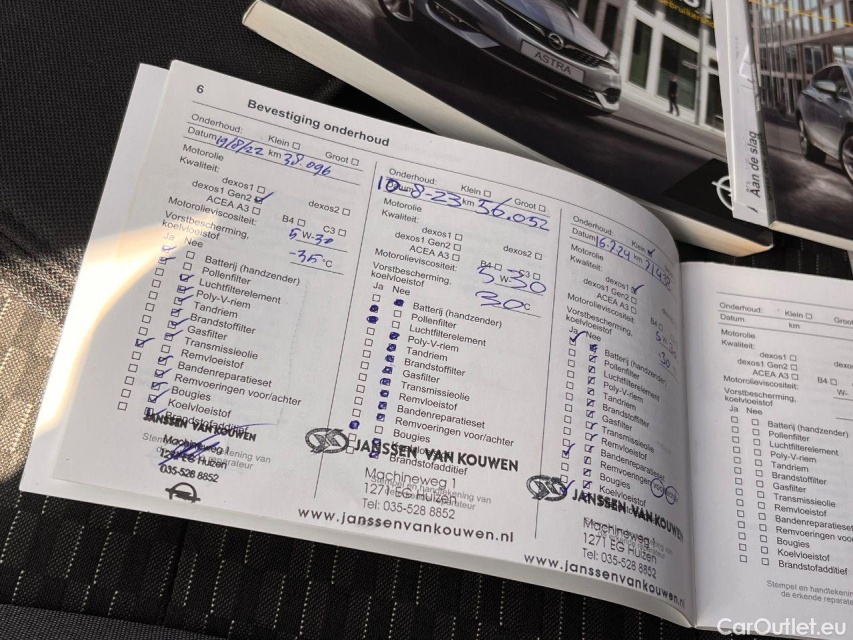 ASTRA
Aan de slag
6
Bevestiging onderhoud
Onderhoud: Klein ☐ Groot ☐
Datum 19/8/22 km 38.096
Motorolie
Kwaliteit:
dexos1 ☐
dexos1 Gen2 ☑ dexos2 ☐
ACEA A3 ☐ B4 ☐ C3 ☐
Motorolieviscositeit: 5 W-30
Vorstbescherming, koelvloeistof -35 °C
Ja Nee
Batterij (handzender)
Pollenfilter
Luchtfilterelement
Poly-V-riem
Tandriem
Brandstoffilter
Gasfilter
Transmissieolie
Remvloeistof
Bandenreparatieset
Remvoeringen voor/achter
Bougies
Koelvloeistof
Brandstofadditief
JANSSEN VAN KOUWEN
Machineweg 1
1271 EG Huizen
035-528 8852
Onderhoud: Klein ☐ Groot ☐
Datum 10-8-23 km 56.052
Motorolie
Kwaliteit:
dexos1 ☐
dexos1 Gen2 ☐ dexos2 ☐
ACEA A3 ☐ B4 ☐ C3 ☐
Motorolieviscositeit: 5 W-30
Vorstbescherming, koelvloeistof 30 °C
Ja Nee
Batterij (handzender)
Pollenfilter
Luchtfilterelement
Poly-V-riem
Tandriem
Brandstoffilter
Gasfilter
Transmissieolie
Remvloeistof
Bandenreparatieset
Remvoeringen voor/achter
Bougies
Koelvloeistof
Brandstofadditief
JANSSEN VAN KOUWEN
Machineweg 1
1271 EG Huizen
Tel: 035-528 8852
www.janssenvankouwen.nl
Stempel en handtekening van
Onderhoud: Klein ☑
Datum km
Motorolie
Kwaliteit:
dexos1 ☑
dexos1 Gen2 ☐
ACEA A3 ☐ B4 ☐
Motorolieviscositeit:
Vorstbescherming, koelvloeistof
Ja Nee
Batterij (handzender)
Pollenfilter
Luchtfilterelement
Poly-V-riem
Tandriem
Brandstoffilter
Gasfilter
Transmissieolie
Remvloeistof
Bandenreparatieset
Remvoeringen
Bougies
Koelvloeistof
JANSSEN VAN KOUWEN
Machineweg 1
1271 EG Huizen
Tel: 035-528 8852
www.janssenvankouwen.nl
Onderhoud: Klein ☐
Datum km
Motorolie
Kwaliteit:
dexos1 ☐
dexos1 Gen2 ☐
ACEA A3 ☐ B4 ☐
Motorolieviscositeit: W-
Vorstbescherming, koelvloeistof
Ja Nee
Batterij (handzender)
Pollenfilter
Luchtfilterelement
Poly-V-riem
Tandriem
Brandstoffilter
Gasfilter
Transmissieolie
Remvloeistof
Bandenreparatieset
Remvoeringen voor
Bougies
Koelvloeistof
Brandstofadditief
Stempel en handtekening
de erkende reparate
CarOutlet.eu